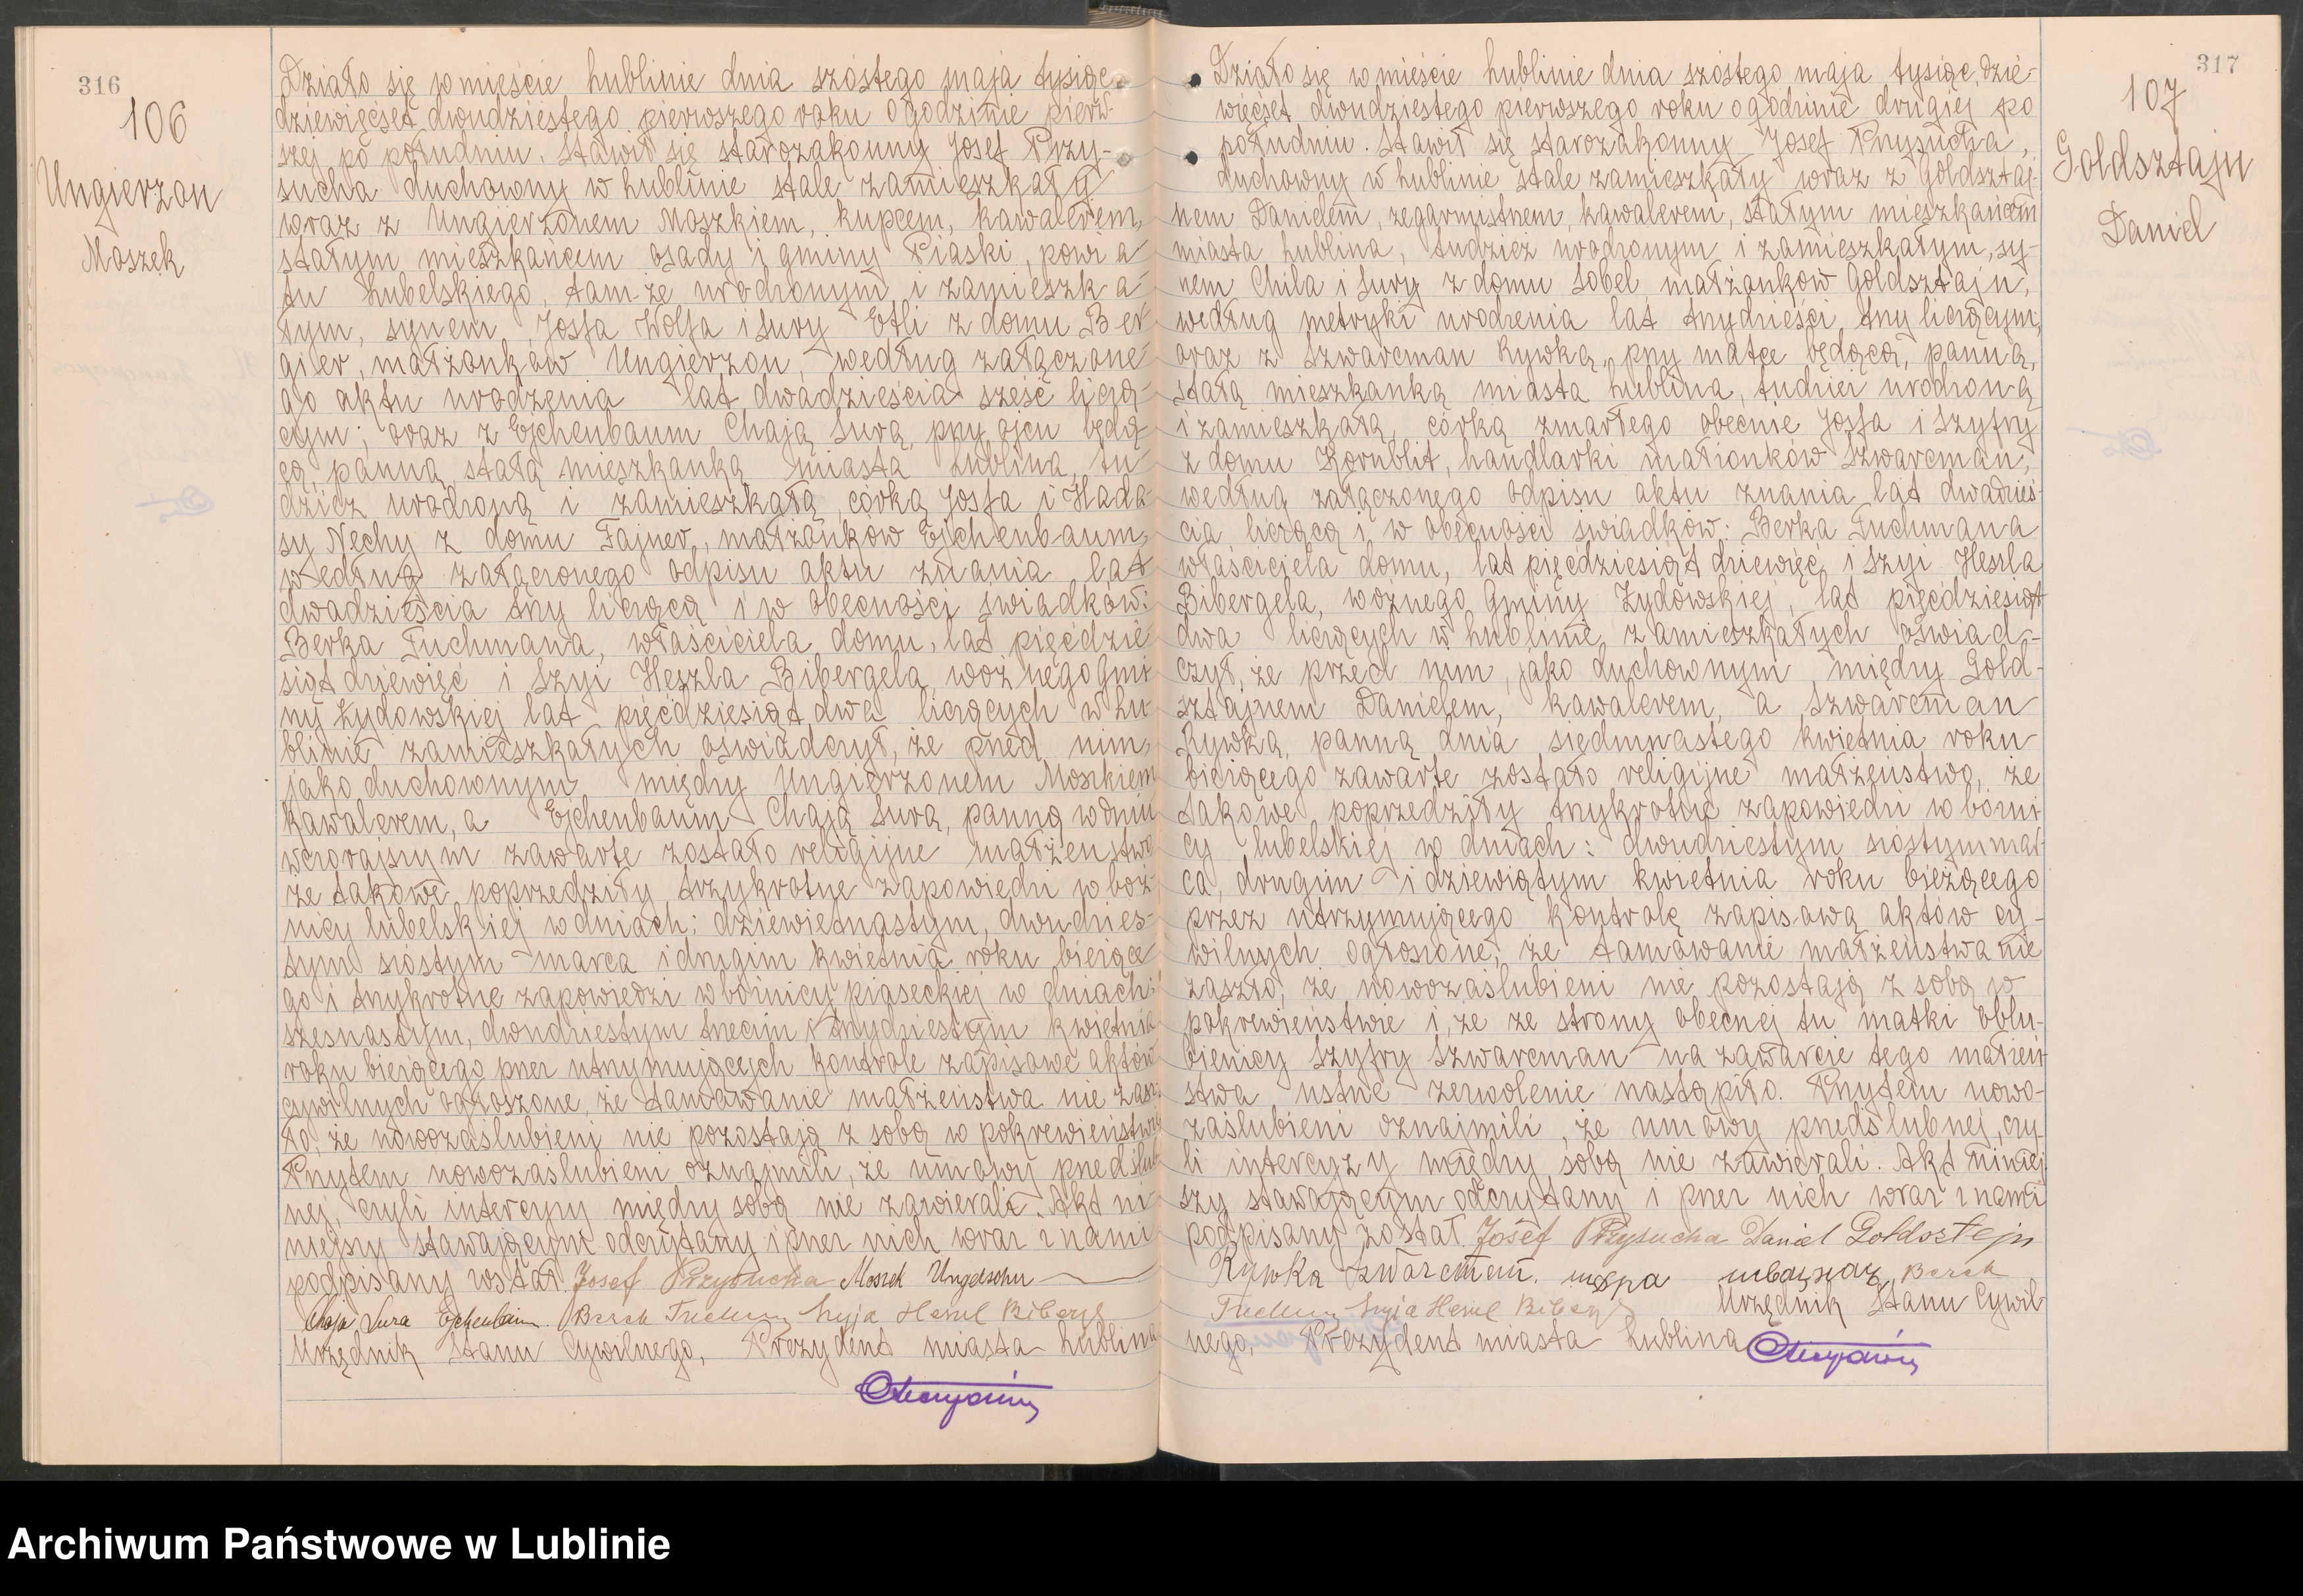 316
106
Ungierzon
Moszek
Działo się w mieście Lublinie dnia szóstego maja tysiąc
dziewięćset dwudziestego pierwszego roku o godzinie pierw-
szej po południu. Stawił się starozakonny Josef Przy-
sucha duchowny w Lublinie stale zamieszkały
wraz z Ungierzonem Moszkiem, kupcem, kawalerem,
stałym mieszkańcem osady i gminy Piaski, powia-
tu Lubelskiego, tam-że urodzonym i zamieszka-
łym, synem Josfa Wolfa i Sury Etli z domu Ber-
gier, małżonków Ungierzon, według załączone-
go aktu urodzenia lat dwadzieścia sześć liczą-
cym; oraz z Ejchenbaum Chają Surą, przy ojcu będą-
cą, panną, stałą mieszkanką miasta Lublina, tu-
dzież urodzoną i zamieszkałą, córką Josfa i Hada-
sy Nechy z domu Fajner, małżonków Ejchenbaum,
według załączonego odpisu aktu znania lat
dwadzieścia trzy liczącą i w obecności świadków:
Berka Fuchmana, właściciela domu, lat pięćdzie-
siąt dziewięć i Szyi Heszla Bibergela, woźnego Gmi-
ny Żydowskiej lat pięćdziesiąt dwa liczących w Lu-
blinie zamieszkałych oświadczył, że przed nim,
jako duchownym między Ungierzonem Moszkiem
kawalerem, a Ejchenbaum Chają Surą, panną w dniu
wczorajszym zawarte zostało religijne małżeństwo
że takowe poprzedziły trzykrotne zapowiedzi w boż-
nicy lubelskiej w dniach: dziewiętnastym, dwudzies-
tym szóstym marca i drugim kwietnia roku bieżące-
go i trzykrotne zapowiedzi w bożnicy piaseckiej w dniach:
szesnastym, dwudziestym trzecim i trzydziestym kwietnia
roku bieżącego przez utrzymujących kontrole zapisowe aktów
cywilnych ogłoszone, że tamowanie małżeństwa nie zasz-
ło, że nowozaślubieni nie pozostają z sobą w pokrewieństwie
Przytem nowozaślubieni oznajmili, że umowy przedślub-
nej, czyli intercyzy między sobą nie zawierali. Akt ni-
niejszy stawającym odczytany i przez nich wraz z nami
podpisany został. Josef Przysucha Moszek Ungelsohn
Chaja Sura Ejchenbaum. Berek Szyja Heszel Biberg
Urzędnik Stanu Cywilnego, Prezydent miasta Lublina
317
107
Goldsztajn
Daniel
Działo się w mieście Lublinie dnia szóstego maja tysiąc dzie-
więćset dwudziestego pierwszego roku o godzinie drugiej po
południu. Stawił się starozakonny Josef Przysucha,
duchowny w Lublinie stale zamieszkały wraz z Goldsztaj-
nem Danielem, zegarmistrzem, kawalerem, stałym mieszkańcem
miasta Lublina, tudzież urodzonym i zamieszkałym, sy-
nem Chila i Sury z domu Sobel małżonków Goldsztajn,
według metryki urodzenia lat trzydzieści trzy liczącym,
oraz z Szwarcman Rywką, przy matce będącą, panną,
stałą mieszkanką miasta Lublina, tudzież urodzoną
i zamieszkałą, córką zmarłego obecnie Josfa i Szyfry
z domu Kornblit, handlarki małżonków Szwarcman,
według załączonego odpisu aktu znania lat dwadzieś-
cia liczącą i w obecności świadków: Berka Fuchmana
właściciela domu, lat pięćdziesiąt dziewięć i Szyi Heszla
Bibergela, woźnego Gminy Żydowskiej, lat pięćdziesiąt
dwa liczących w Lublinie zamieszkałych oświad-
czył, że przed nim, jako duchownym między Gold-
sztajnem Danielem, kawalerem, a Szwarcman
Rywką, panną dnia siedmnastego kwietnia roku
bieżącego zawarte zostało religijne małżeństwo, że
takowe poprzedziły trzykrotne zapowiedzi w bożni-
cy lubelskiej w dniach: dwudziestym szóstym mar-
ca, drugim i dziewiątym kwietnia roku bieżącego
przez utrzymującego kontrolę zapisową aktów cy-
wilnych ogłoszone, że tamowanie małżeństwa nie
zaszło, że nowozaślubieni nie pozostają z sobą w
pokrewieństwie i, że ze strony obecnej tu matki oblu-
bienicy Szyfry Szwarcman na zawarcie tego małżeń-
stwa ustne zezwolenie nastąpiło. Przytem nowo-
zaślubieni oznajmili, że umowy przedślubnej, czy-
li intercyzy między sobą nie zawierali. Akt niniej-
szy stawającym odczytany i przez nich wraz z nami
podpisany został. Josef Przysucha Daniel Goldsztejn
Rywka Szwarcman. Berek
Szyja Heszel Biberg Urzędnik Stanu Cywil-
nego, Prezydent miasta Lublina
Archiwum Państwowe w Lublinie